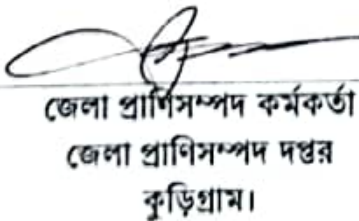 জেলা প্রাণিসম্পদ কর্মকর্তা
জেলা প্রাণিসম্পদ দপ্তর
কুড়িগ্রাম।